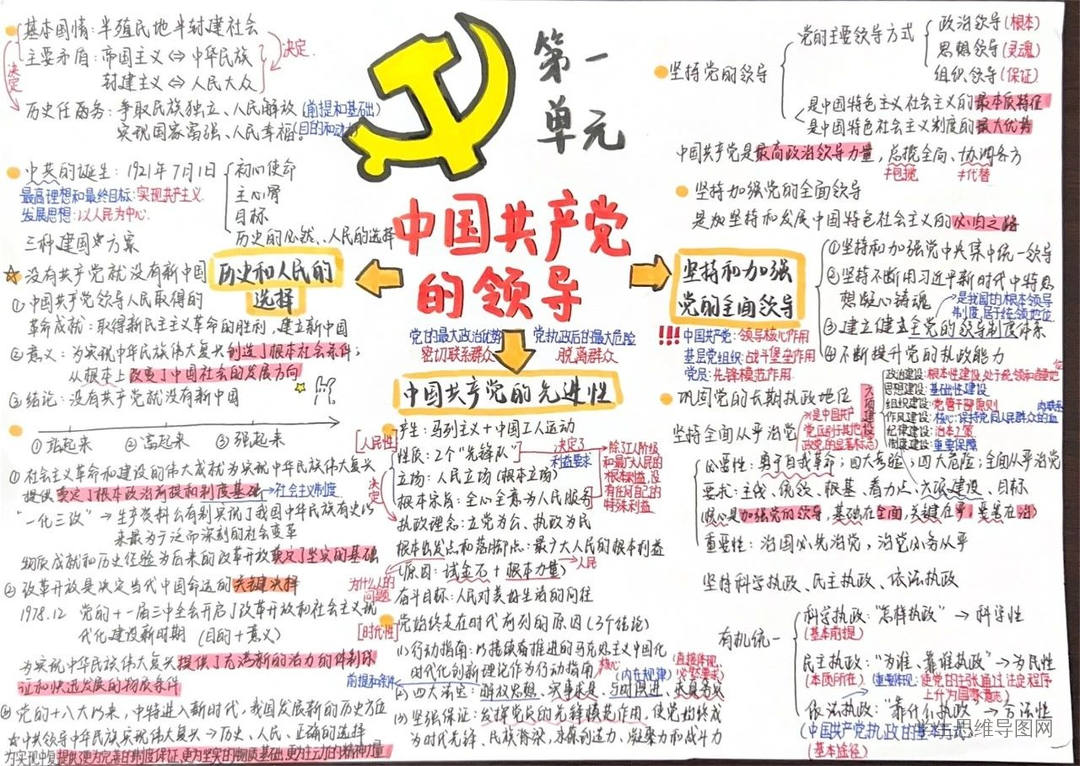 第一
单元
中国共产党
的领导
基本国情:半殖民地半封建社会
主要矛盾:帝国主义⇔中华民族
封建主义⇔人民大众
决定
决定
历史任务:争取民族独立、人民解放(前提和基础)
实现国家富强、人民幸福。(目的和
中共的诞生:1921年7月1日
初心使命
主心骨
目标
历史的必然、人民的选择
最高理想和最终目标:实现共产主义
发展思想:以人民为中心.
三种建国方案
历史和人民的
选择
☆没有共产党就没有新中国
①中国共产党领导人民取得的
革命成就:取得新民主主义革命的胜利,建立新中国
②意义:为实现中华民族伟大复兴创造了根本社会条件;
从根本上改变了中国社会的发展方向
③结论:没有共产党就没有新中国
①站起来 ②富起来 ③强起来
①社会主义革命和建设的伟大成就为实现中华民族伟大复兴
提供奠定了根本政治前提和制度基础→社会主义制度
"一化三改"→生产资料公有制实现了我国中华民族有史以
来最为广泛而深刻的社会变革
物质成就和历史经验为后来的改革开放奠定了坚实的基础
②改革开放是决定当代中国命运的关键抉择
1978.12 党的十一届三中全会开启了改革开放和社会主义现
代化建设新时期 (目的+意义)
为实现中华民族伟大复兴提供了充满新的活力的体制保
证和快速发展的物质条件
③党的十八大以来,中特进入新时代,我国发展新的历史方位
☆中共领导中华民族实现伟大复兴→历史、人民、正确的选择
为实现中复提供了更为完善的制度保证、更为坚实的物质基础、更为主动的精神力量
党的最大政治优势
密切联系群众
党执政后的最大危险
脱离群众
中国共产党的先进性
[人民性]
产生:马列主义+中国工人运动
性质:2个"先锋队"
立场:人民立场(根本立场)
根本宗旨:全心全意为人民服务
执政理念:立党为公、执政为民
决定
决定了
利益要求
除了工人阶级
和最广大人民的
根本利益,没
有任何自己的
特殊利益
根本出发点和落脚点:最广大人民的根本利益
(原因:试金石+根本力量)
人民
为什么人的
问题
奋斗目标:人民对美好生活的向往
[时代性]
党始终走在时代前列的原因(3个结论)
(1)行动指南:以接续着推进的马克思主义中国化
时代化创新理论作为行动指南
核心
(内在规律)
(直接体现、
必然要求)
前提和条件
(2)四大法宝:解放思想、实事求是、与时俱进、求真务实
(3)坚强保证:发挥党员的先锋模范作用,使党始终成
为时代先锋、民族脊梁,永葆创造力、凝聚力和战斗力
坚持党的领导
党的主要领导方式
政治领导(根本)
思想领导(灵魂)
组织领导(保证)
是中国特色主义社会主义的最本质特征
是中国特色社会主义制度的最大优势
中国共产党是最高政治领导力量,总揽全局、协调各方
≠包揽
≠代替
坚持加强党的全面领导
是加坚持和发展中国特色社会主义的必由之路
坚持和加强
党的全面领导
①坚持和加强党中央集中统一领导
②坚持不断用习近平新时代中特思
想凝心铸魂
是我国的根本领导
制度,居于统领地位
③建立健全党的领导制度体系
④不断提升党的执政能力
!!!
中国共产党:领导核心作用
基层党组织:战斗堡垒作用
党员:先锋模范作用
巩固党的长期执政地位
坚持全面从严治党
(是中国共产
党区别于其他政
政党的显著标志)
政治建设:根本性建设,处于统领和首要地位
思想建设:基础性建设
组织建设:党管干部原则
作风建设:核心:保持党同人民群众的血
肉联系
纪律建设:治本之策
制度建设:重要保障
必要性:勇于自我革命;四大考验、四大危险;全面从严治党
要求:主线、统领、根基、着力点、六项建设、目标
(核心是加强党的领导,基础在全面,关键在严,要害在治)
重要性:治国必先治党,治党必务从严
坚持科学执政、民主执政、依法执政
有机统一
科学执政:"怎样执政"→科学性
(基本前提)
民主执政:"为谁、靠谁执政"→为民性
(本质所在)
(重要体现:使党的主张通过法定程序
上升为国家意志)
依法执政:"靠什么执政"→合法性
(中国共产党执政的基本方式)
(基本途径)
思维导图网